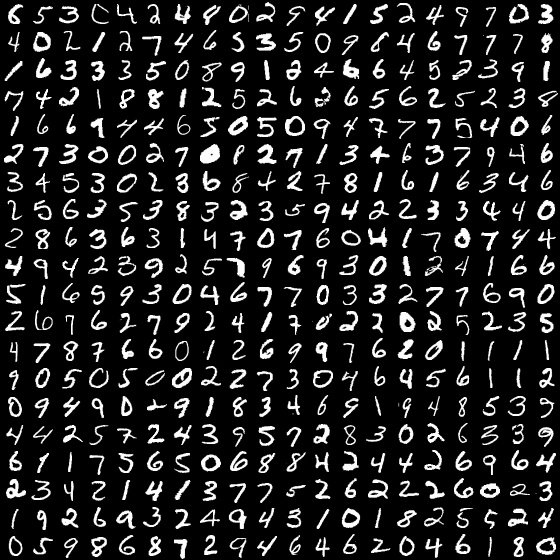 6 5 3 0 4 2 4 8 0 2 9 4 1 5 2 4 9 7 0 3
4 0 2 1 2 7 4 6 5 3 5 0 9 8 4 6 7 7 7 8
1 6 3 3 3 5 0 8 9 1 2 4 6 6 4 5 2 3 9 1
7 4 2 1 8 8 1 2 5 2 6 2 6 5 6 2 5 2 3 8
1 6 6 9 4 4 6 5 0 5 0 9 4 7 7 7 5 4 0 6
2 7 3 0 0 2 7 0 8 2 7 1 3 4 6 3 7 9 4 6
3 4 5 3 0 2 3 6 8 4 2 7 8 1 6 1 6 3 4 6
2 5 6 3 5 3 8 3 2 3 5 9 4 2 2 3 3 4 4 0
2 8 6 3 6 3 1 4 7 0 7 6 0 4 1 7 0 7 4 4
4 9 4 2 3 9 2 5 7 9 6 9 3 0 1 2 4 1 6 6
5 1 6 5 9 3 0 4 6 7 7 0 3 3 2 7 7 6 9 0
2 6 7 6 2 7 9 2 4 1 7 0 2 2 0 2 5 2 3 5
4 7 8 7 6 6 0 1 2 6 9 9 7 6 2 0 1 1 1 1
9 0 5 0 5 0 0 2 2 7 3 0 4 6 4 5 6 1 1 2
0 9 4 9 0 2 9 1 8 3 4 6 9 1 9 4 8 5 3 9
4 4 2 5 7 2 4 3 9 5 7 2 8 3 0 2 6 3 3 9
6 9 1 7 5 6 5 0 6 8 8 4 2 4 4 2 6 9 6 4
2 3 4 2 1 4 1 3 7 7 5 2 6 2 2 2 6 0 2 3
1 9 2 6 9 3 2 4 9 4 3 1 0 1 8 2 5 5 2 4
0 5 9 8 6 8 7 2 9 4 6 4 6 2 0 4 6 1 8 0